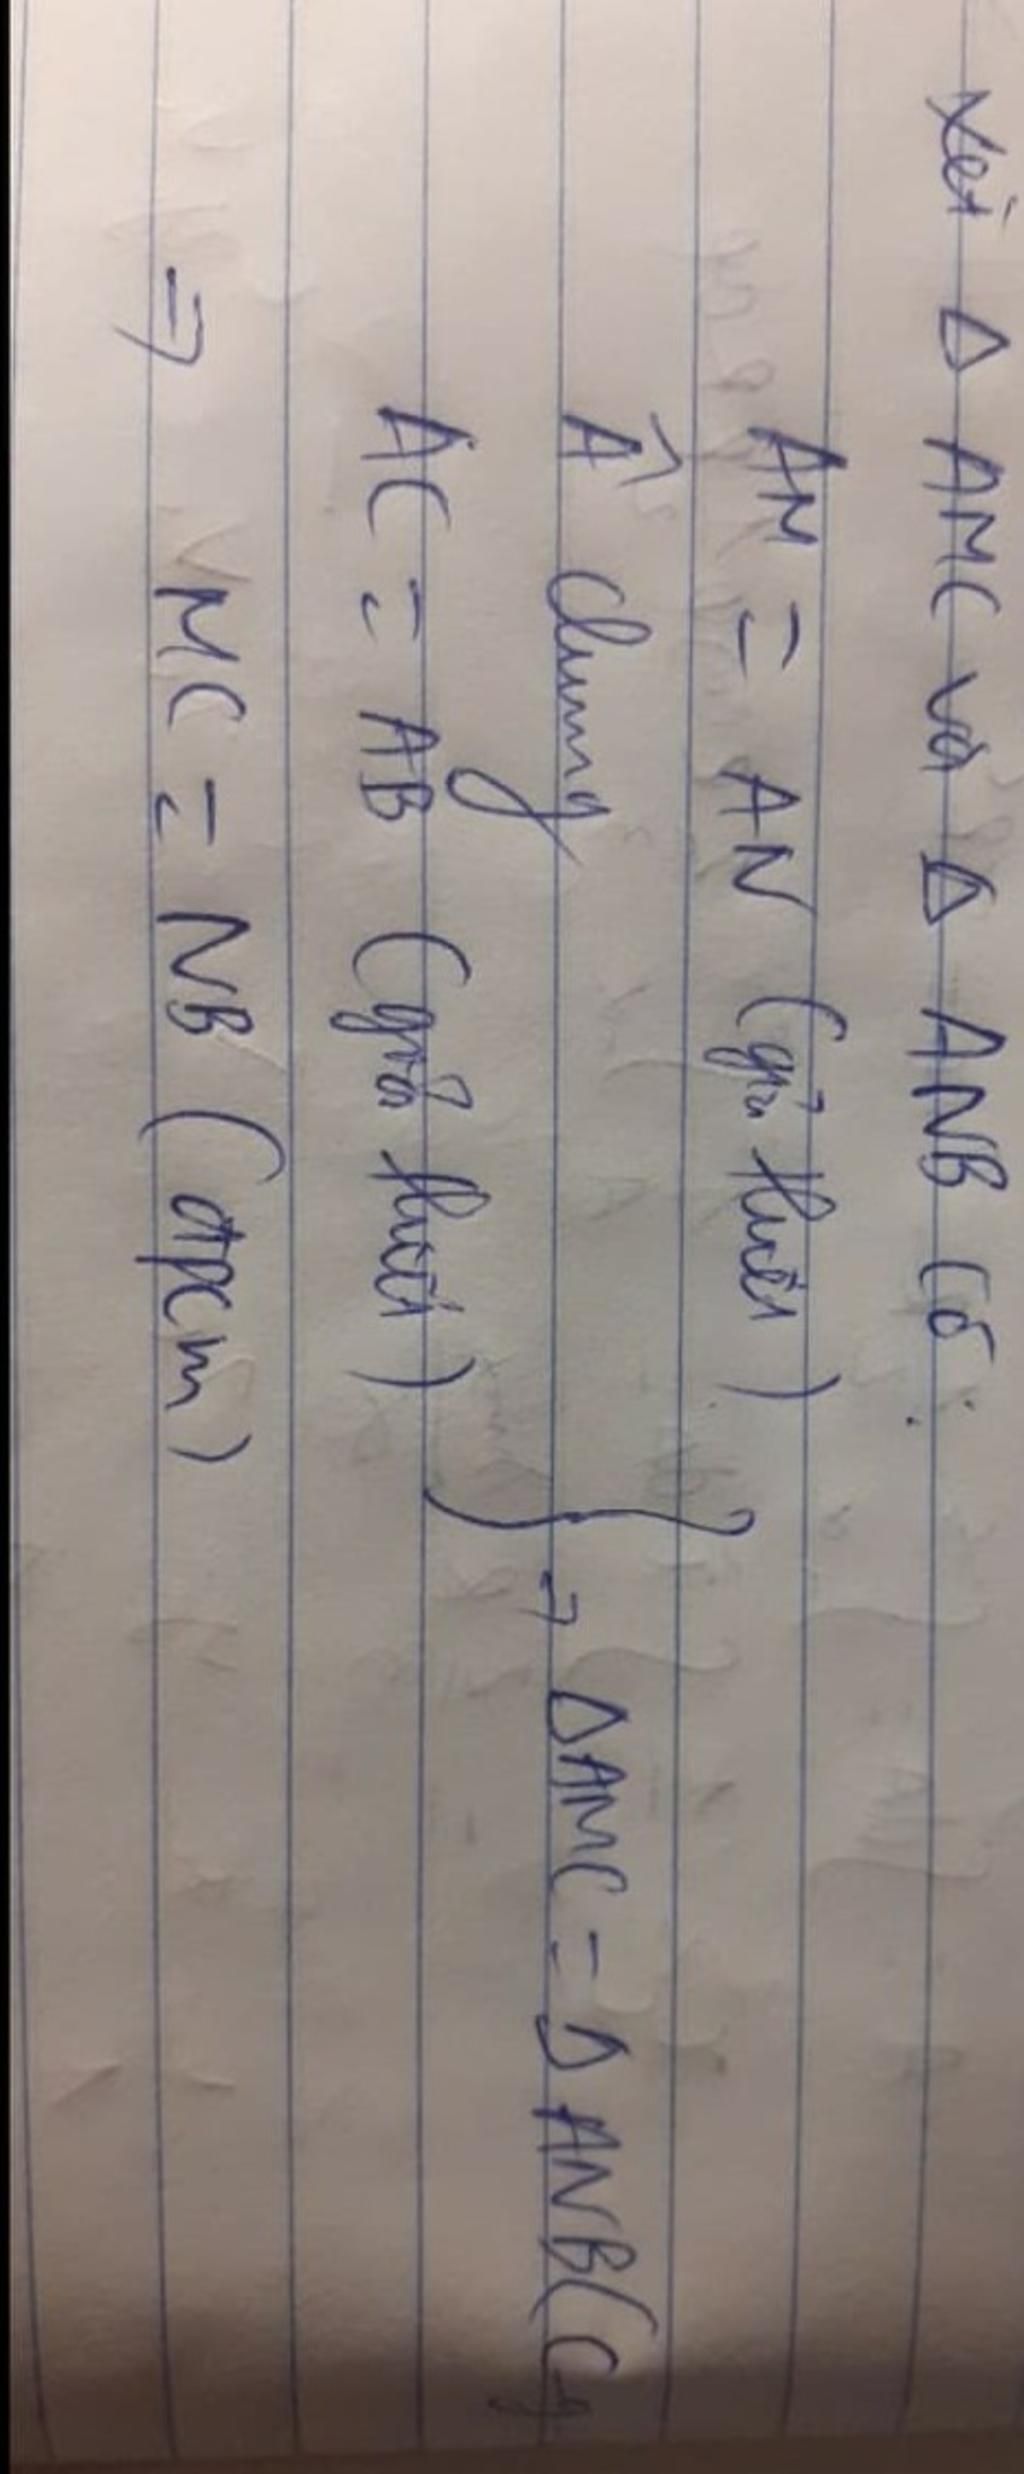 Xét Δ AMC và Δ ANB có:
AM = AN (giả thiết)
Â chung
AC = AB (giả thiết)
⇒ ΔAMC = Δ ANB (c.g
⇒ MC = NB (đpcm)